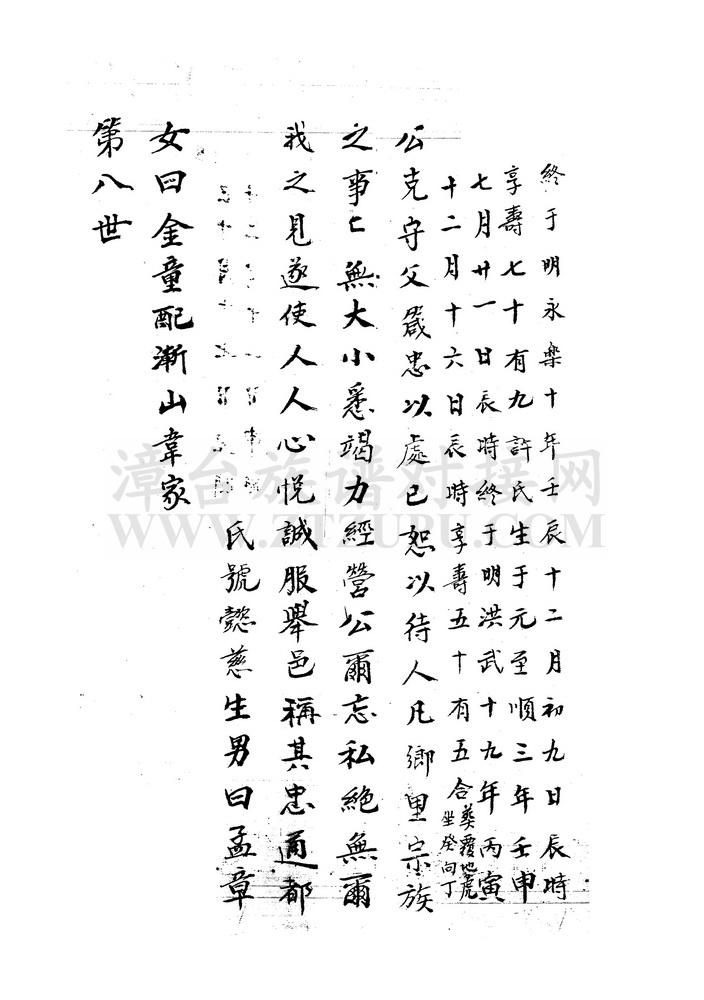 終于明永樂十年壬辰十二月初九日辰時
享壽七十有九許氏生于元至順三年壬申
七月廿一日辰時終于明洪武十九年丙寅
十二月十六日辰時享壽五十有五合葬覆地虎
坐癸向丁
公克守父箴忠以處己恕以待人凡鄉里宗族
之事亡無大小悉竭力經營公爾忘私絕無爾
我之見遂使人人心悅誠服舉邑稱其忠通都
氏號懿慈生男曰孟章
女曰金童配漸山韋家
第八世
漳台族谱对接网
WWW.ZTZUPU.COM